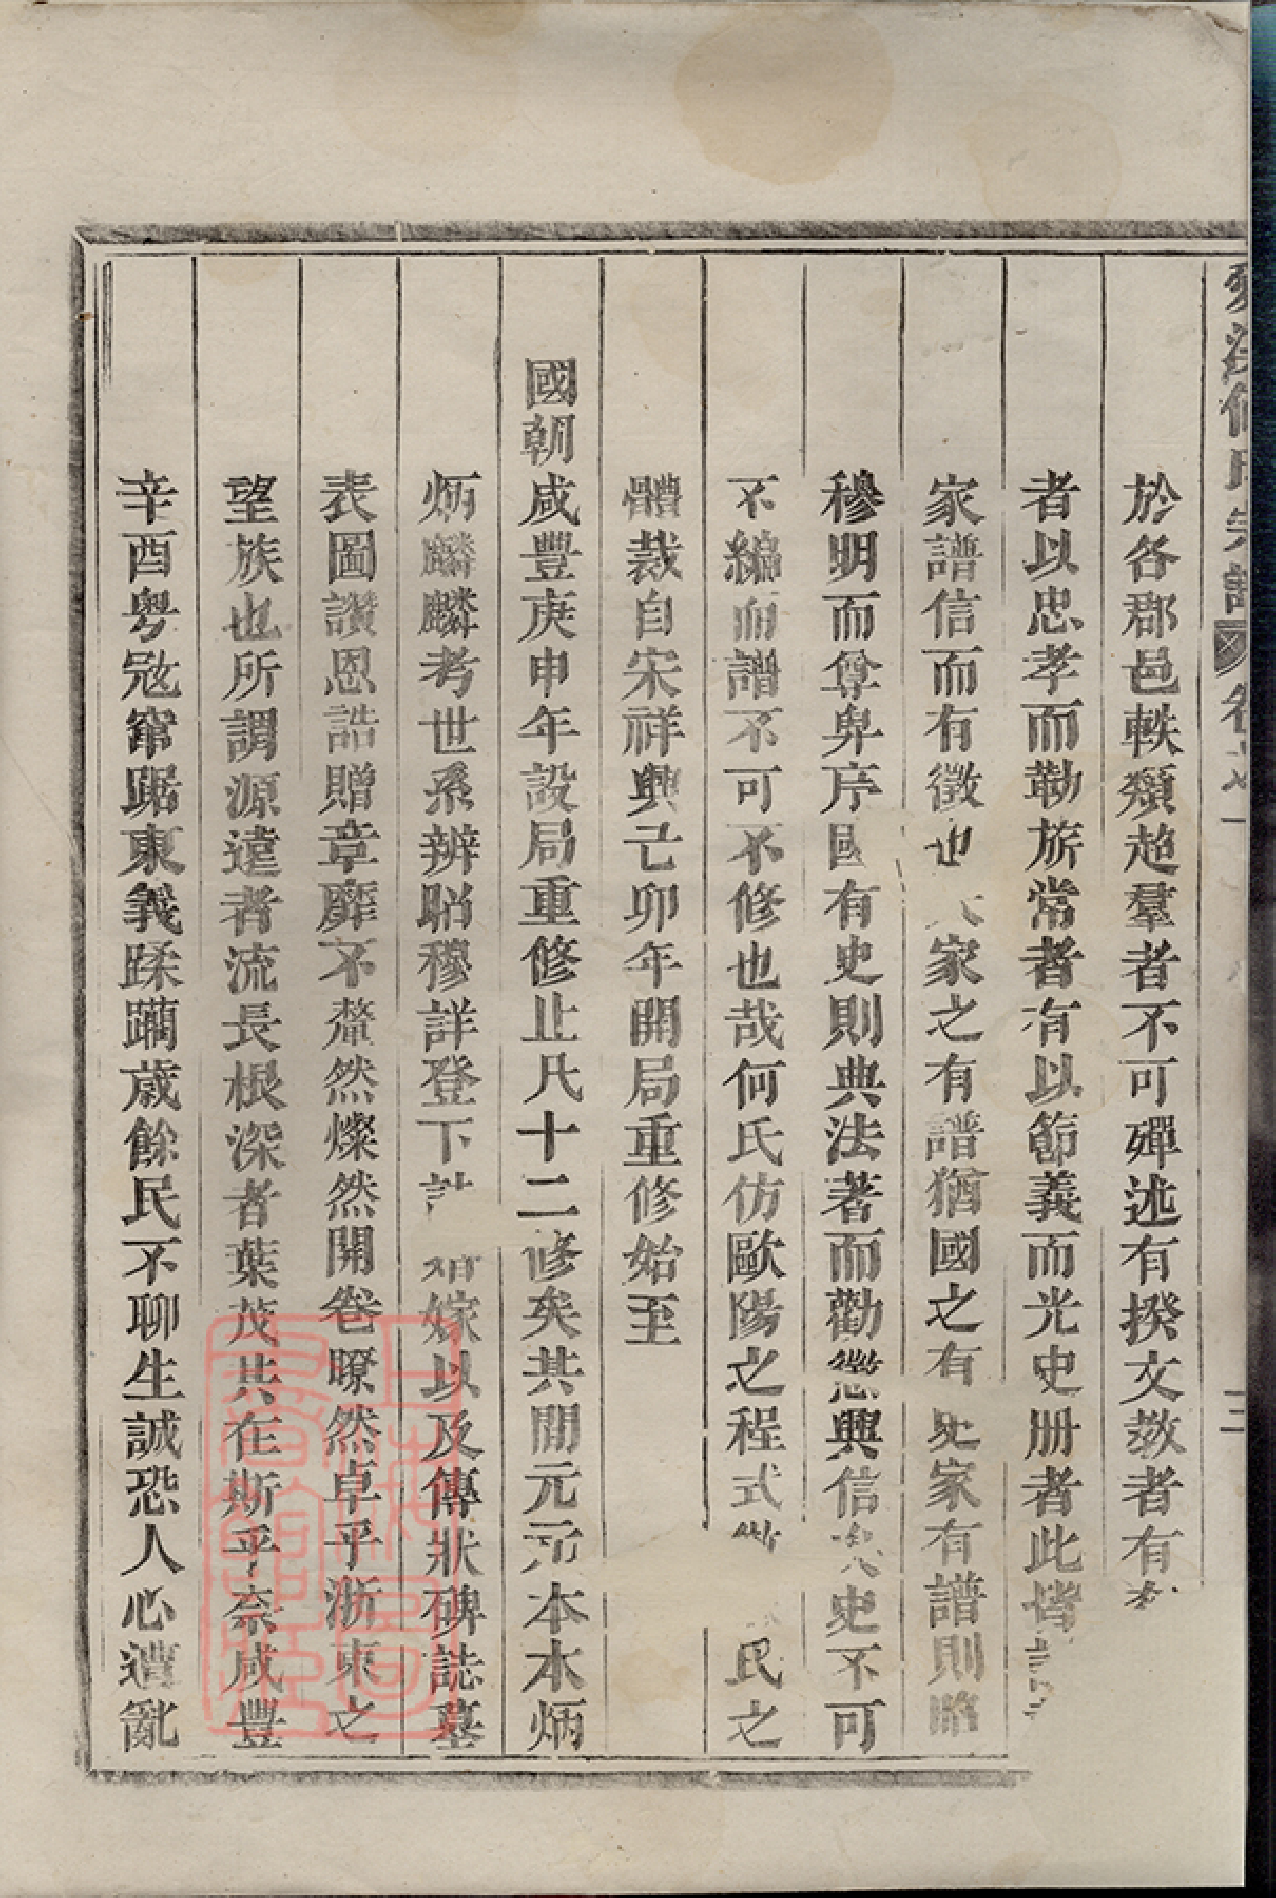 於各郡邑軼類超羣者不可殫述有揆文敎者有
者以忠孝而勒旂常者有以節義而光史册者此皆
家譜信而有徵也家之有譜猶國之有史家有譜則昭
穆明而尊卑序國有史則典法著而勸懲興信矣史不可
不編而譜不可不修也哉何氏仿歐陽之程式氏之
體裁自宋祥興己卯年開局重修始至
國朝咸豐庚申年設局重修止凡十二修矣共開元元本本炳
炳麟麟考世系辨昭穆詳登下嫁以及傳狀碑誌墓
表圖讚恩誥贈章靡不犛然燦然開卷瞭然卓乎浙東之
望族也所謂源遠者流長根深者葉茂其在斯乎奈咸豐
辛酉粤寇竄踞東義蹂躪歲餘民不聊生誠恐人心遭亂
何氏宗譜
卷之一
二
上海圖書館藏